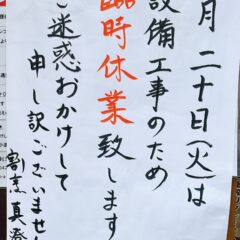 月二十日(火)は
設備工事のため
臨時休業致します
ご迷惑おかけして
申し訳ございません
割烹真澄